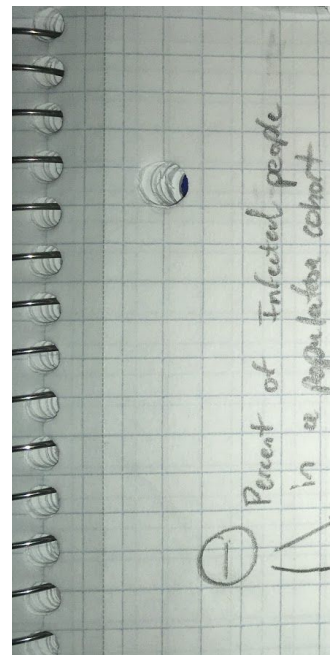 Percent of Infected people
in a population cohort